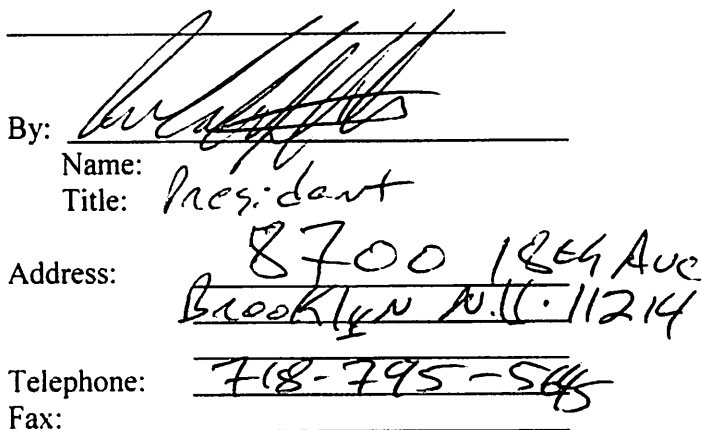 By:
Name:
Title: President
Address: 8700 18th Ave
Brooklyn N.Y. 11214
Telephone: 718-795-
Fax: